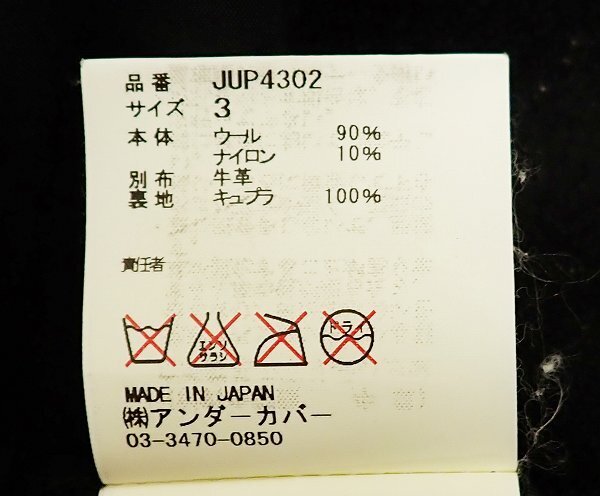 品番 JUP4302
サイズ 3
本体 ウール 90%
ナイロン 10%
別布 牛革
裏地 キュプラ 100%
責任者
エンソ サラシ ドライ
MADE IN JAPAN
㈱アンダーカバー
03-3470-0850